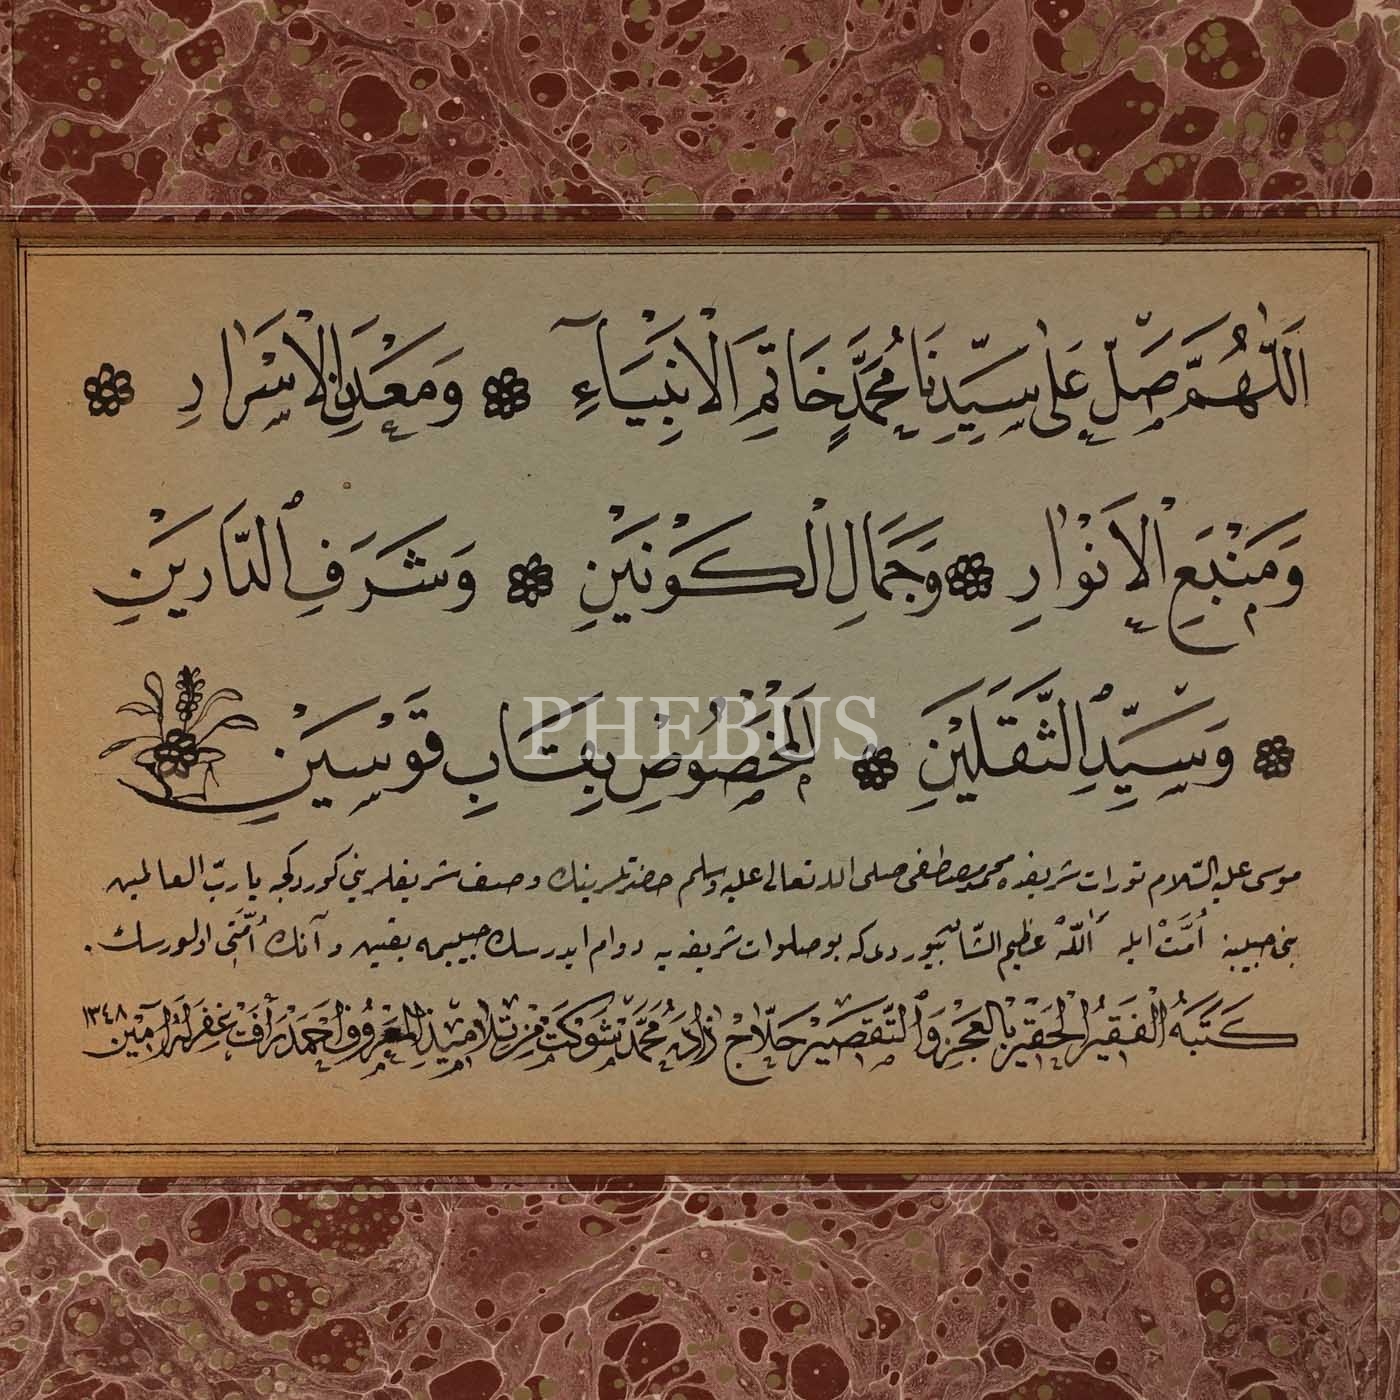 اَللّٰهُمَّ صَلِّ عَلٰى سَيِّدِنَا مُحَمَّدٍ خَاتِمِ الْاَنْبِيَاۤءِ وَمَعْدَنِ الْاَسْرَارِ
وَمَنْبَعِ الْاَنْوَارِ وَجَمَالِ الْكَوْنَيْنِ وَشَرَفِ الدَّارَيْنِ
وَسَيِّدِ الثَّقَلَيْنِ اَلْمَخْصُوصِ بِقَابِ قَوْسَيْنِ
PHEBUS
موسى عليه السّلام تورات شريفده محمد مصطفى صلى الله تعالى عليه وسلم حضرتلرينك وصف شريفلرينى كوردكجه يا ربّ العالمين
بنى حبيبنه اُمَّتْ ايله اَللّٰهُ عظيم الشّان بيوردى كه بو صلوات شريفه يه دوام ايدرسك حبيبمه يقين و آنك اُمَّتى اولورسك .
كَتَبَهُ الْفَقِيرُ الْحَقِيرُ بِالْعَجْزِ وَالتَّقْصِيرْ حَلَّاجْ زَادَه مُحَمَّدْ شَوْكَتْ مِنْ تَلَامِيذِ الْمَعْرُوفِ اَحْمَدْ رَأفَتْ غُفِرَ لَهُمَا آمِينْ ١٣٤٨